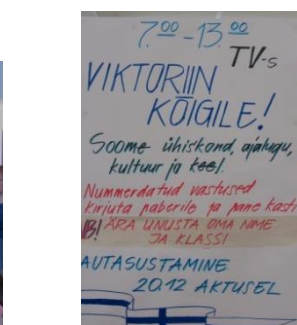 7.00-13.00
TV-s
VIKTORIIN
KÕIGILE!
Soome ühiskond, ajalugu,
kultuur ja keel.
Nummerdatud vastused
kirjuta paberile ja pane kasti
B! ÄRA UNUSTA OMA NIME
JA KLASSI
AUTASUSTAMINE
20.12 AKTUSEL